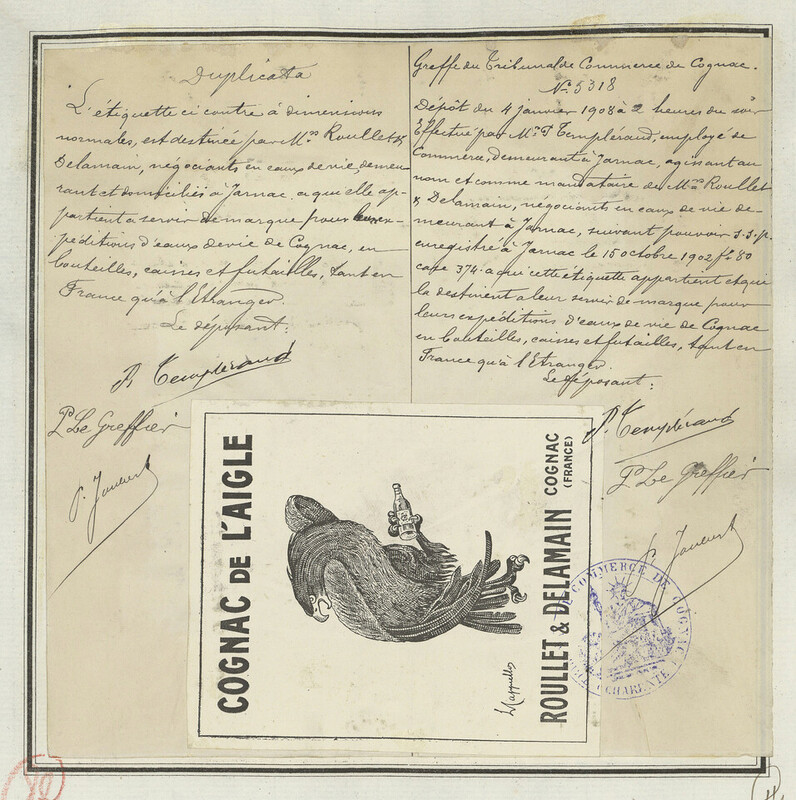 Duplicata
L'étiquette ci contre à dimensions
normales, est destinée par Mrs Roullet &
Delamain, négociants en eaux de vie, demeu
rant et domiciliés à Jarnac, a qui elle ap-
partient a servir de marque pour leurs ex-
péditions d'eaux de vie de Cognac, en
bouteilles, caisses et futailles, tant en
France qu'à l'Etranger.
Le déposant:
P. Templéraud
P. Le Greffier
Greffe du Tribunal de Commerce de Cognac.
No 5318
Dépôt du 4 janvier 1908 à 2 heures du soir
Effectué par Mr P. Templéraud, employé de
Commerce, demeurant à Jarnac, agissant au
nom et comme mandataire de Mrs Roullet
& Delamain, négociants en eaux de vie de-
meurant à Jarnac, suivant pouvoir s.s.p.
enregistré à Jarnac le 15 octobre 1902 fo 80
case 374 a qui cette étiquette appartient et qui
la destinent a leur servir de marque pour
leurs expéditions d'eaux de vie de Cognac
en bouteilles, caisses et futailles, tant en
France qu'à l'Etranger.
Le déposant:
P. Templéraud
P. Le Greffier
COGNAC DE L'AIGLE
L. Cappiello
ROULLET & DELAMAIN COGNAC
(FRANCE)
COMMERCE DE COGNAC
CHARENTE